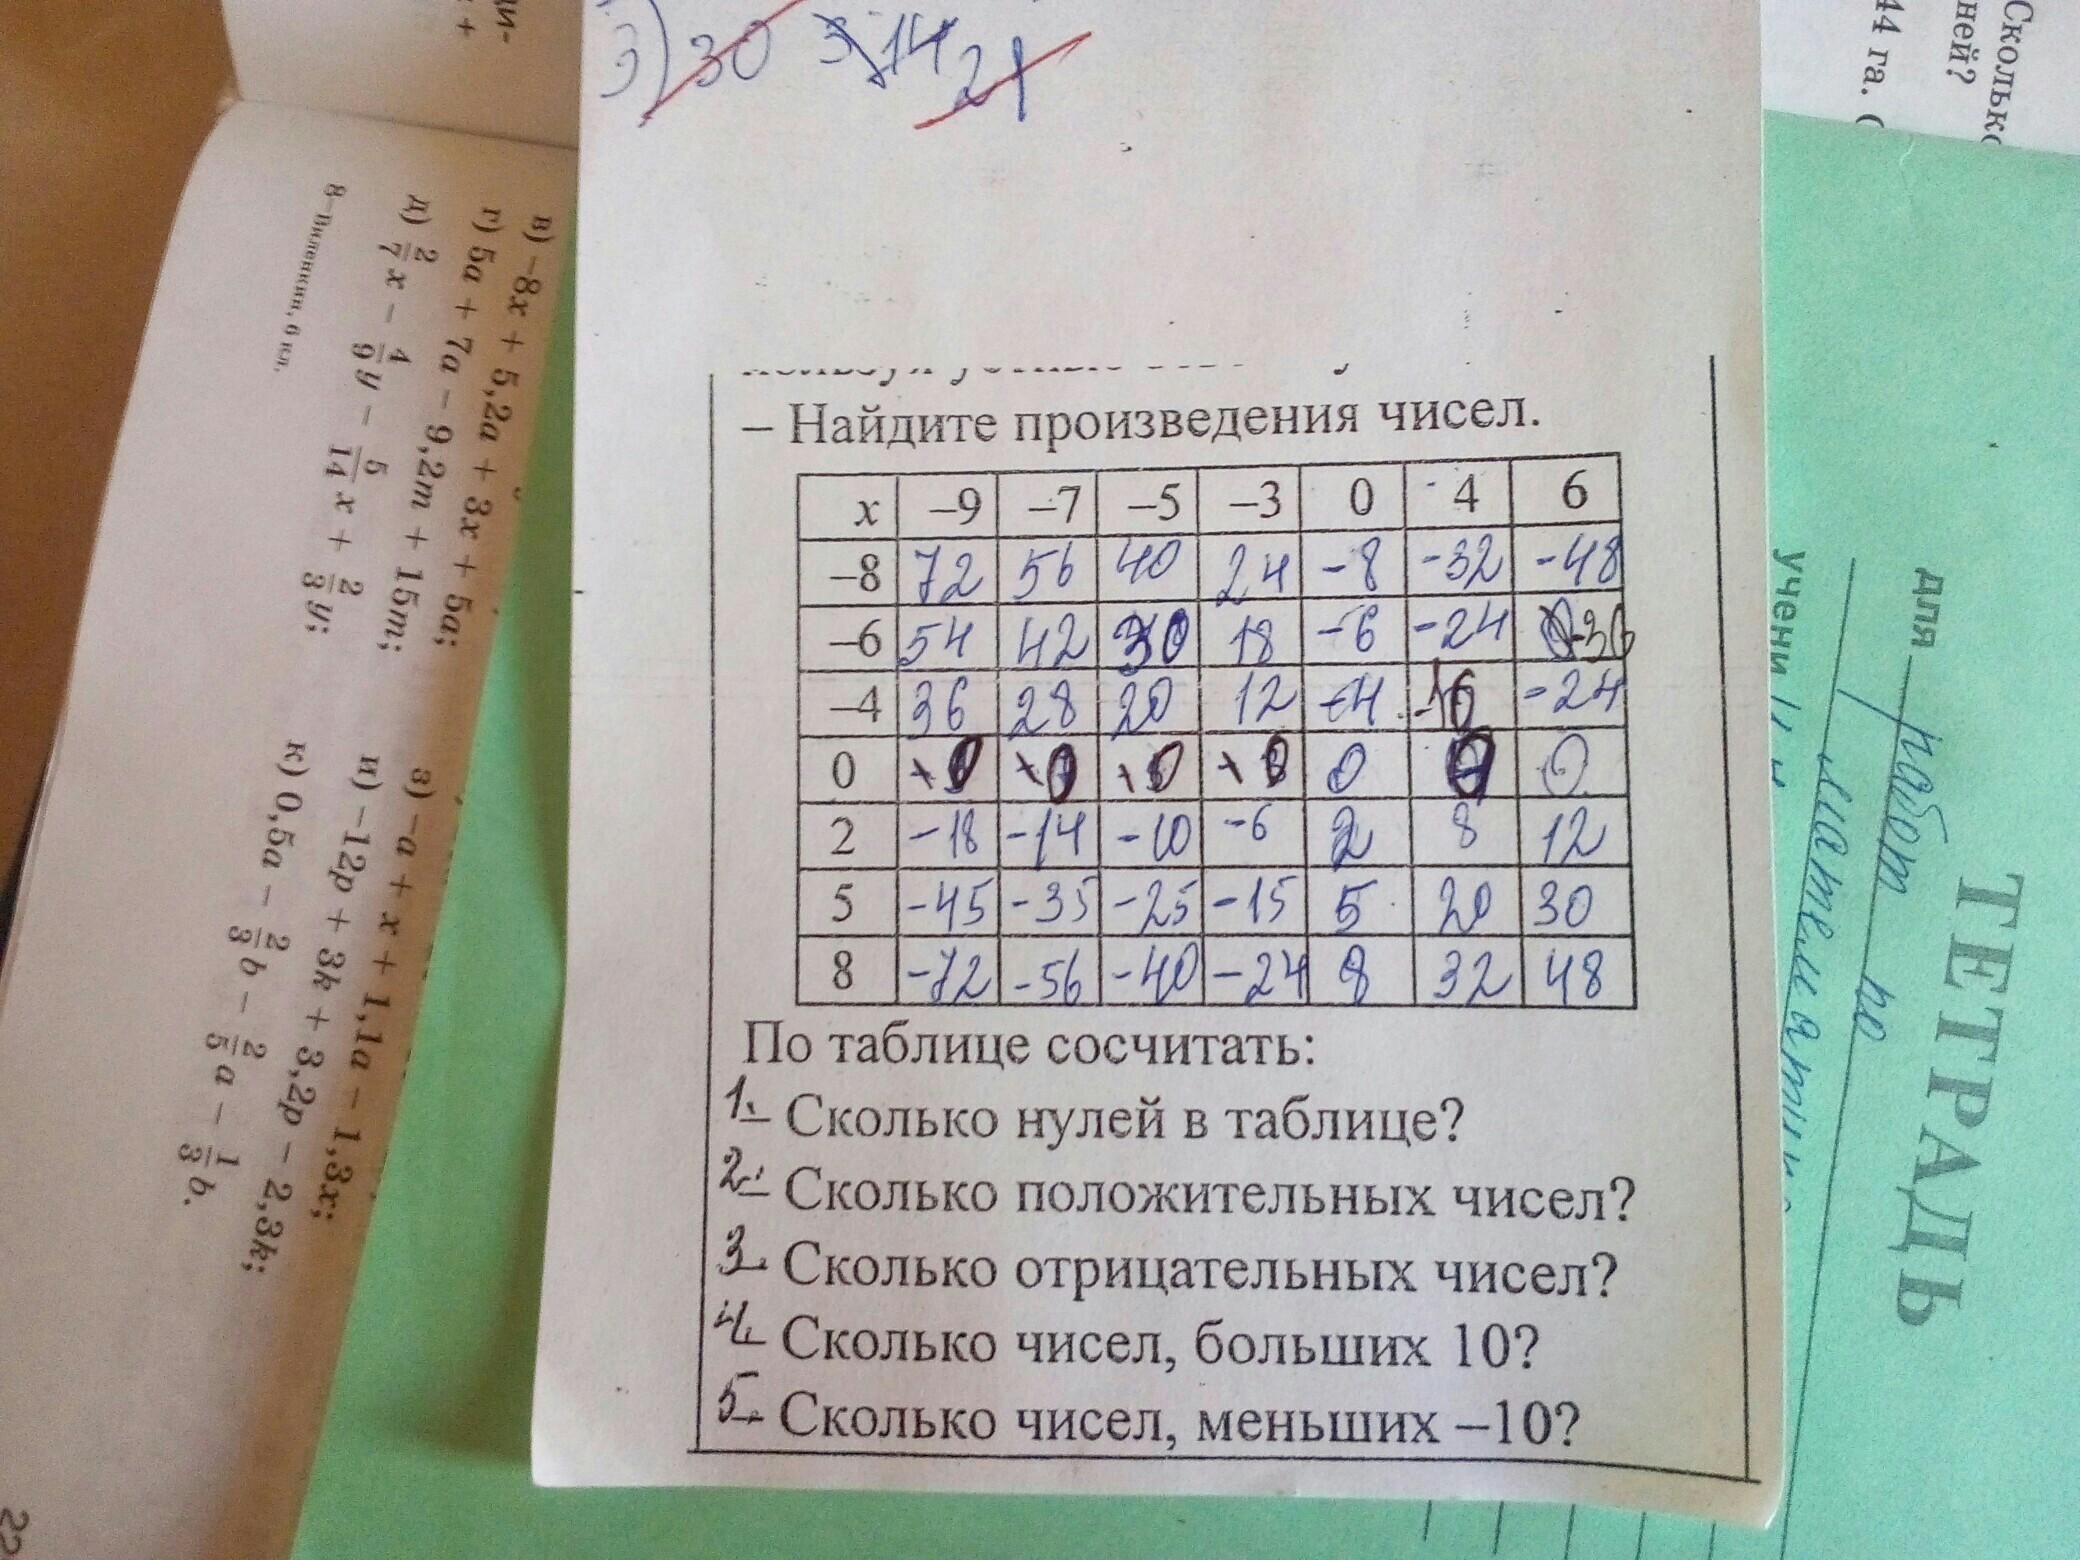 3) 30 14 21
– Найдите произведения чисел.
x –9 –7 –5 –3 0 4 6
–8 72 56 40 24 -8 -32 -48
–6 54 42 30 18 -6 -24 -36
–4 36 28 20 12 -4 -16 -24
0 0 0 0 0 0 0 0
2 -18 -14 -10 -6 2 8 12
5 -45 -35 -25 -15 5 20 30
8 -72 -56 -40 -24 8 32 48
По таблице сосчитать:
1. – Сколько нулей в таблице?
2. – Сколько положительных чисел?
3. – Сколько отрицательных чисел?
4. – Сколько чисел, больших 10?
5. – Сколько чисел, меньших –10?
в) –8x + 5,2a + 3x + 5a;
г) 5a + 7a – 9,2m + 15m;
д) 2/7 x – 4/9 y – 5/14 x + 2/3 y;
8–Виленкин, 6 кл.
з) –a + x + 1,1a – 1,3x;
и) –12p + 3k + 3,2p – 2,3k;
к) 0,5a – 2/3 b – 2/5 a – 1/3 b.
22
ней?
44 га.
ТЕТРАДЬ
для работ по
учени